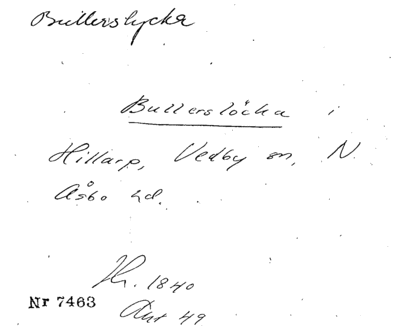 Bullerslycka
Bullerslöcka i
Hillarp, Vedby sn, N.
Åsbo hd.
Hr. 1840
Nr 7463
Ant 49